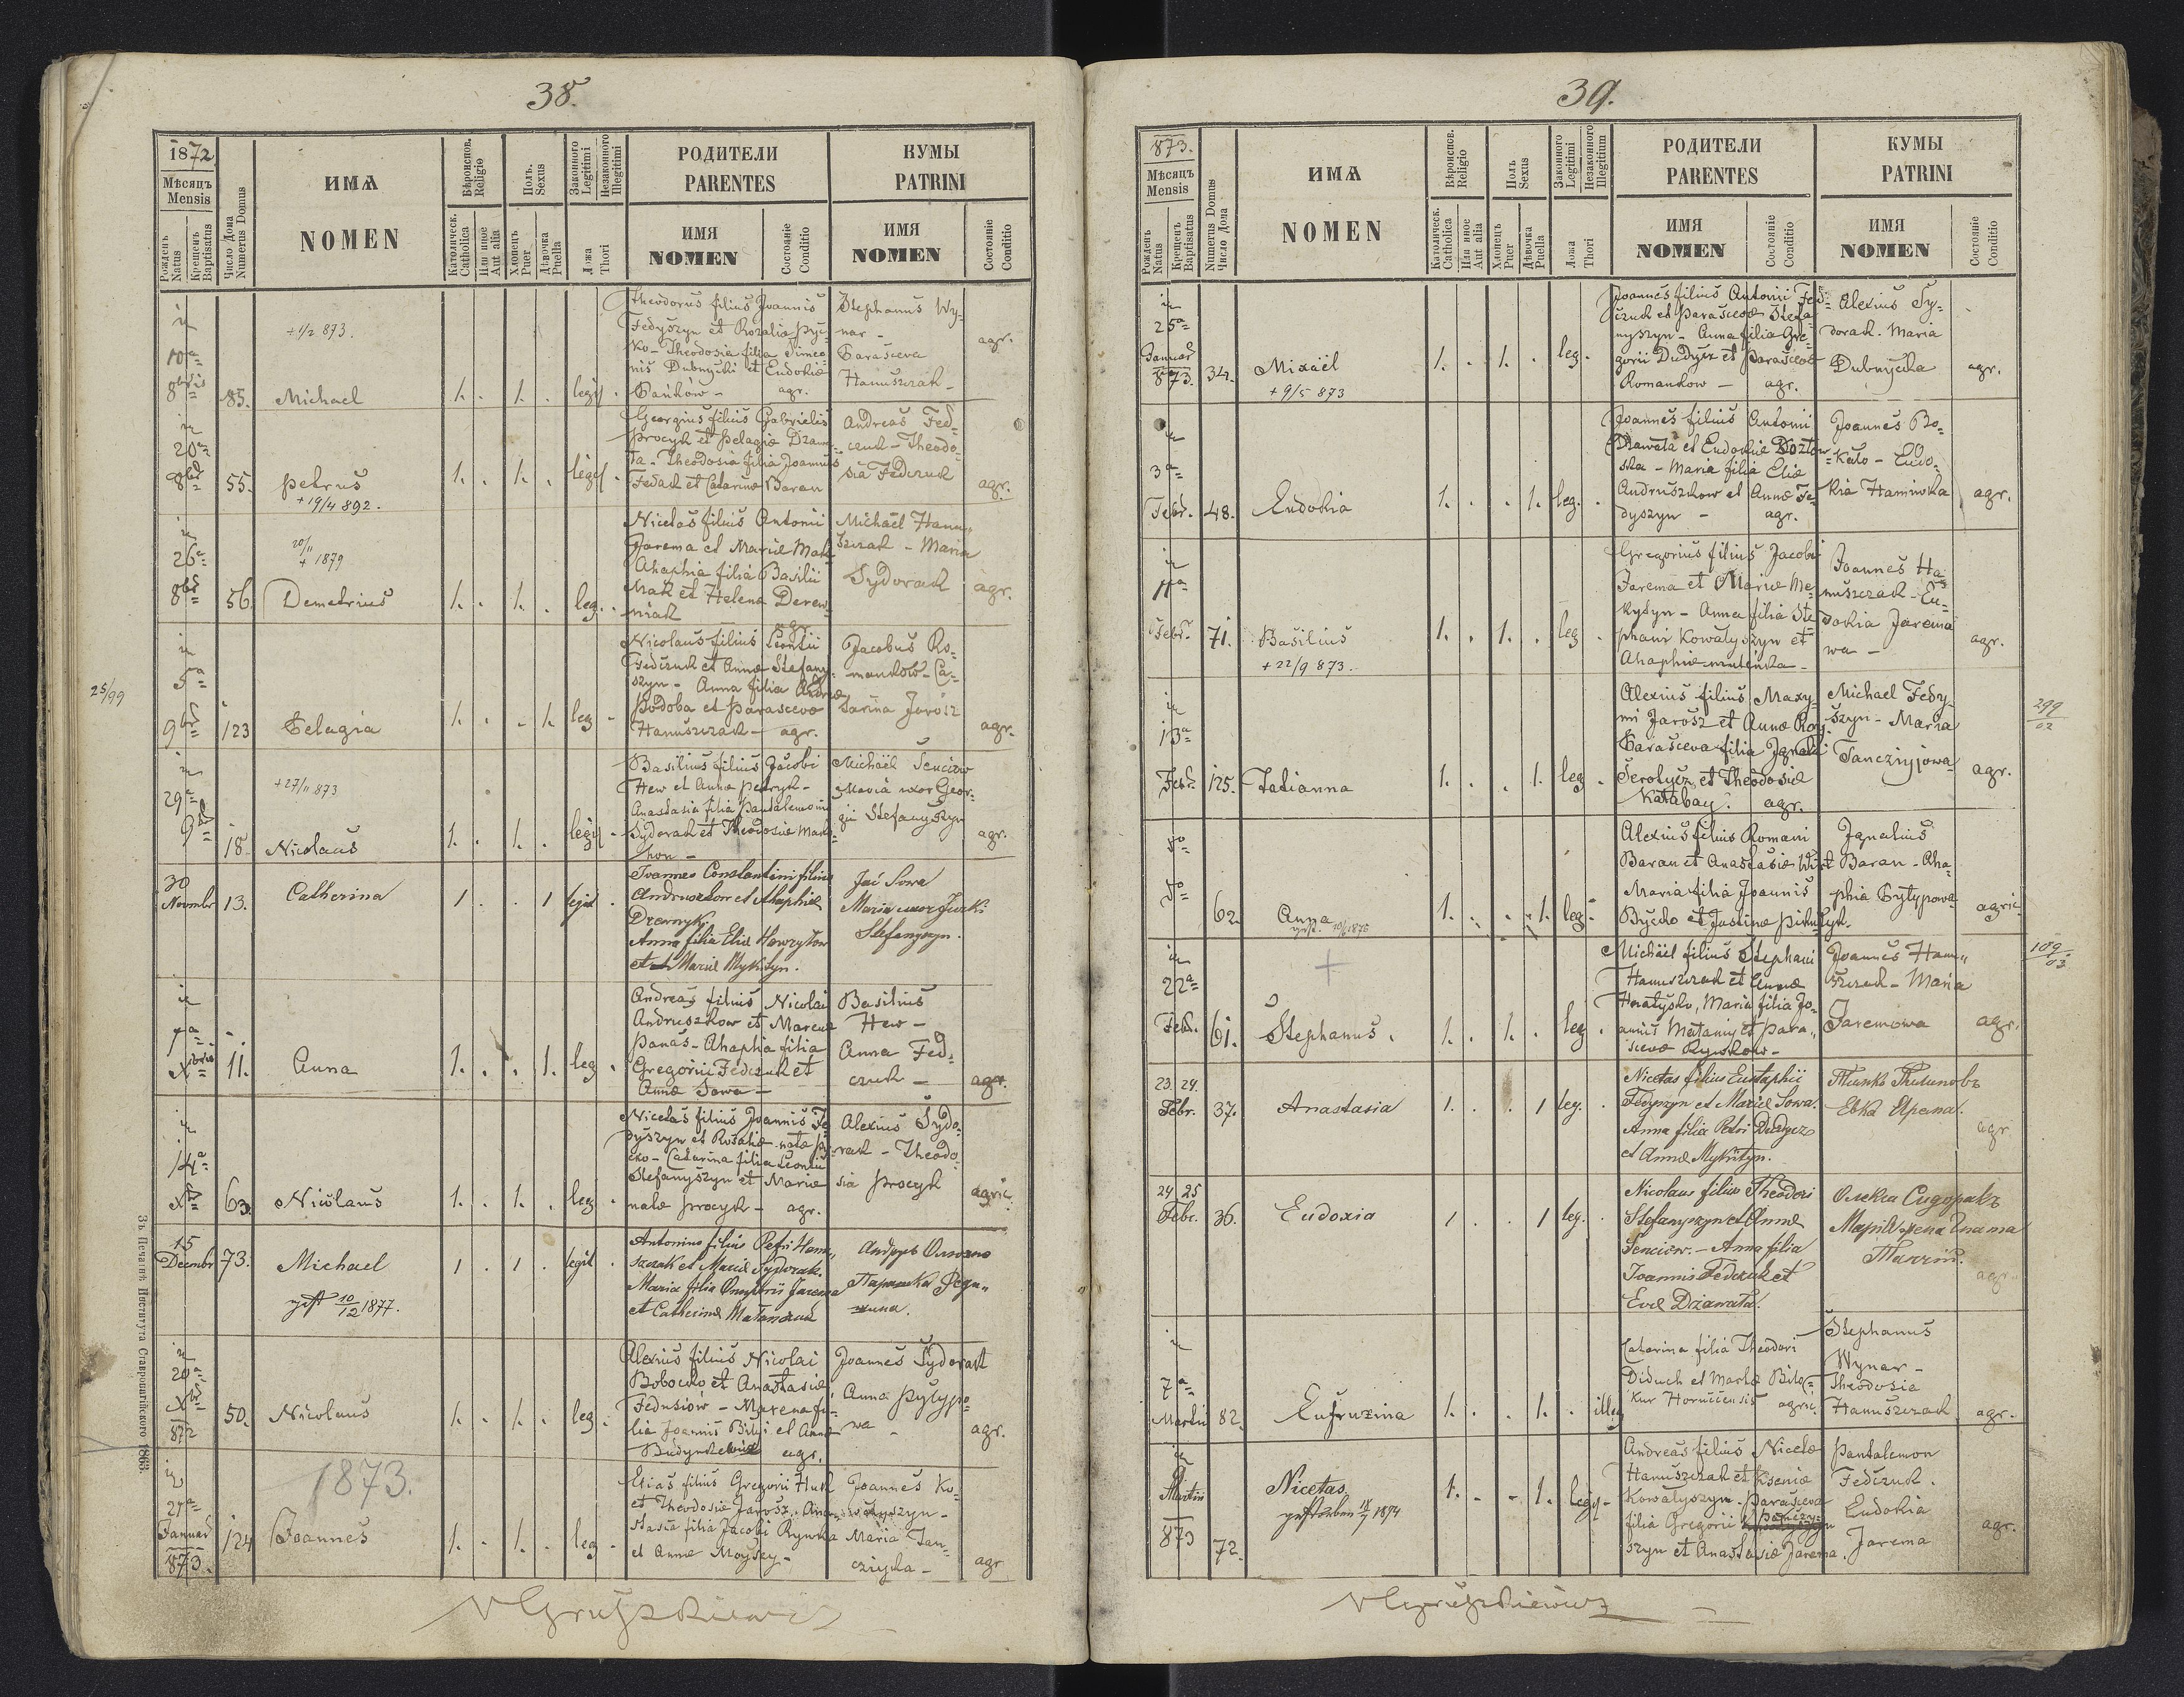 38.
1872
Мѣсяцъ
Mensis
Рожденъ
Natus
Крещенъ
Baptisatus
Число Дома
Numerus Domus
ИМѦ
NOMEN
Вѣроиспов.
Religio
Католическ.
Catholica
Или иное
Aut alia
Полъ.
Sexus
Хлопецъ
Puer
Дѣвочка
Puella
Законного
Legitimi
Незаконного
Illegitimi
Ложа
Thori
РОДИТЕЛИ
PARENTES
ИМЯ
NOMEN
Состояніе
Conditio
КУМЫ
PATRINI
ИМЯ
NOMEN
Состояніе
Conditio
in 10a 8bris 85. Michael 1. . 1. . legit .
+ 1/2 873.
Theodorus filius Joannis
Fedyszyn et Rozalia Pyć-
ko - Theodosia filia Simeo
nis Dubnycki et Eudokiæ
Bańków - agr.
Stephanus Wy-
nar -
Parasceva
Hanuszczak -
agr.
in 20a 8bris 55. Petrus 1. . 1. . legit .
+ 19/4 892.
Georgius filius Gabrielis
Procyk et Pelagiæ Dzawa-
ła - Theodosia filia Joannis
Fedak et Catarinæ Baran
Andreas Fed-
czuk - Theodo-
sia Fedczuk
agr.
in 26a 8bris 56. Demetrius 1. . 1. . leg. .
20/11 + 1879
Nicetas filius Antonii
Jarema et Mariæ Mak
Ahaphia filia Basilii
Mak et Helenæ Derew-
niak agr.
Michaël Hanu-
szczak - Maria
Sydorak
agr.
25/99
in 5a 9bris 123 Pelagia 1. . . 1. leg .
Nicolaus filius Leontii
Fedczuk et Annæ Stefany-
szyn - Anna filia Andreæ
Podoba et Parascevæ
Hanuszczak - agr.
Jacobus Ro-
mankow - Ca-
tarina Jarosz
agr.
in 29a 9bris 18. Nicolaus 1. . 1. . legit .
+ 27/11 873
Basilius filius Jacobi
Hew et Annæ Petryk -
Anastasia filia Pantalemonis
Sydorak et Theodosiæ Mat-
hon -
Michaël Senciow
Maria uxor Geor-
gii Stefanyszyn
agr.
30 Novembr 13. Catherina 1 . . 1 legit .
Joannes Constantini filius
Andruszkow et Ahaphiæ
Anna filia Eliæ Hawryłow
et Mariæ Mykityn.
Jaś Sowa
Maria uxor Jurki
Stefanyszyn.
in 7a Xbris 11. Anna 1. . . 1. leg .
Andreas filius Nicolai
Andruszkow et Marenæ
Panas - Ahaphia filia
Gregorii Fedczuk et
Annæ Sowa -
Basilius
Hew -
Anna Fed-
czuk -
agr.
in 14a Xbris 63. Nicolaus 1. . 1. . leg .
Nicetas filius Joannis Fe-
dyszyn et Rosaliæ natæ Py-
cko - Catarina filia Leontii
Stefanyszyn et Mariæ
natæ Procyk - agr.
Alexius Sydo-
rak - Theodo-
sia Procyk
agric.
15 Decembr 73. Michael 1 . 1 . legit .
10/12 1877.
Antonius filius Petri Hanu-
szczak et Mariæ Sydorak.
Maria filia Onuphrii Jarema
et Catherinæ
in 20a Xbris 872 50. Nicolaus 1. . 1. . leg .
Alexius filius Nicolai
Bobeczko et Anastasiæ
Fedusiów - Marena fi-
lia Joannis Biłyi et Annæ
Budynkewicz agr.
Joannes Sydorak
Anna Pyłypo-
wa -
agr.
1873.
in 27a Januar 873. 124 Joannes 1. . 1. . leg .
Elias filius Gregorii Huk
et Theodosiæ Jarosz. Ana-
stasia filia Jacobi Rynka
et Annæ Moysey -
Joannes Ko-
wałyszyn -
Maria Tan-
czyjka -
agr
Зъ Печатнѣ Института Ставропигійского 1863.
39.
873.
Мѣсяцъ
Mensis
Рожденъ
Natus
Крещенъ
Baptisatus
Numerus Domus
Число Дома
ИМѦ
NOMEN
Вѣроиспов.
Religio
Католическ.
Catholica
Или иное
Aut alia
Полъ
Sexus
Хлопецъ
Puer
Дѣвочка
Puella
Законного
Legitimi
Незаконного
Illegitimum
Ложа
Thori
РОДИТЕЛИ
PARENTES
ИМЯ
NOMEN
Состояніе
Conditio
КУМЫ
PATRINI
ИМЯ
NOMEN
Состояніе
Conditio
in 25a Januar 873. 34. Mixaël 1. . 1. . leg .
+ 9/5 873
Joannes filius Antonii Fed-
czuk et Parascevæ Stefa-
nyszyn - Anna filia Gre-
gorii Dudycz et Parascevæ
Romankow - agr.
Alexius Sy-
dorak. Maria
Dubnycka
agr.
in 3a Febr. 48. Eudokia 1. . . 1. leg. .
Joannes filius Antonii
Dżawała et Eudokiæ
ska - Maria filia Eliæ
Andruszkow et Annæ Fe-
dyszyn - agr.
Joannes Bo-
- Eudo-
kia Haniwka
agr.
in 11a Febr. 71. Basilius 1. . 1. . leg .
+ 22/9 873.
Gregorius filius Jacobi
Jarema et Mariæ Me-
kytyn - Anna filia Ste-
phani Kowałyszyn et
Ahaphiæ
Joannes Ha-
nuszczak - Eu-
dokia Jarema
wa -
agr.
in 13a Febr. 125. Tatianna 1. . . 1. leg .
Alexius filius Maxy-
mi Jarosz et Annæ
Parasceva filia Ignatii
Serotycz et Theodosiæ
Katabay. agr.
Michael Fedy-
szyn - Maria
Tanczyjowa
agr.
299/02
5a 5a 62 Anna 1. . . 1. leg .
1875
Alexius filius Romani
Baran et Anastasiæ Wist
Maria filia Joannis
Byćko et Justinæ
Ignatius
Baran - Aha-
phia Pyłypowa
agric.
in 22a Febr. 61. Stephanus. 1. . 1. . leg .
Michaël filius Stephani
Hanuszczak et Annæ
Hnatyśko, Maria filia Jo-
annis Mataniy et Para-
scevæ Rynkow -
Joannes Hanu-
szczak - Maria
Jaremowa
agr.
109/03
23. 24. Febr. 37. Anastasia 1. . . 1 leg. .
Nicetas filius Eustaphii
Fedyszyn et Mariæ Sowa.
Anna filia Petri Dudycz
et Annæ Mykityn.
Евка Ярема.
agr
24 25 Febr. 36. Eudoxia 1 . . 1 leg. .
Nicolaus filius Theodori
Stefanyszyn et Annæ
Senciow. - Anna filia
Joannis Fedczuk et
Evæ Dżawała.
Олекса Сидоракъ
agr.
in 7a Martii 82. Eufruzina 1. . . 1. . illeg
Catarina filia Theodori
Diduch et Marthæ Biło-
kur Horuccensis agric.
Stephanus
Wynar -
Theodosia
Hanuszczak
agr.
in Martii 873 72. Nicetas 1. . . 1. legit .
1894
Andreas filius Nicetæ
Hanuszczak et Kseniæ
Kowałyszyn - Parasceva
filia Gregorii
szyn et Anastasiæ Jarema.
Pantalemon
Fedczuk.
Eudokia
Jarema
agr.